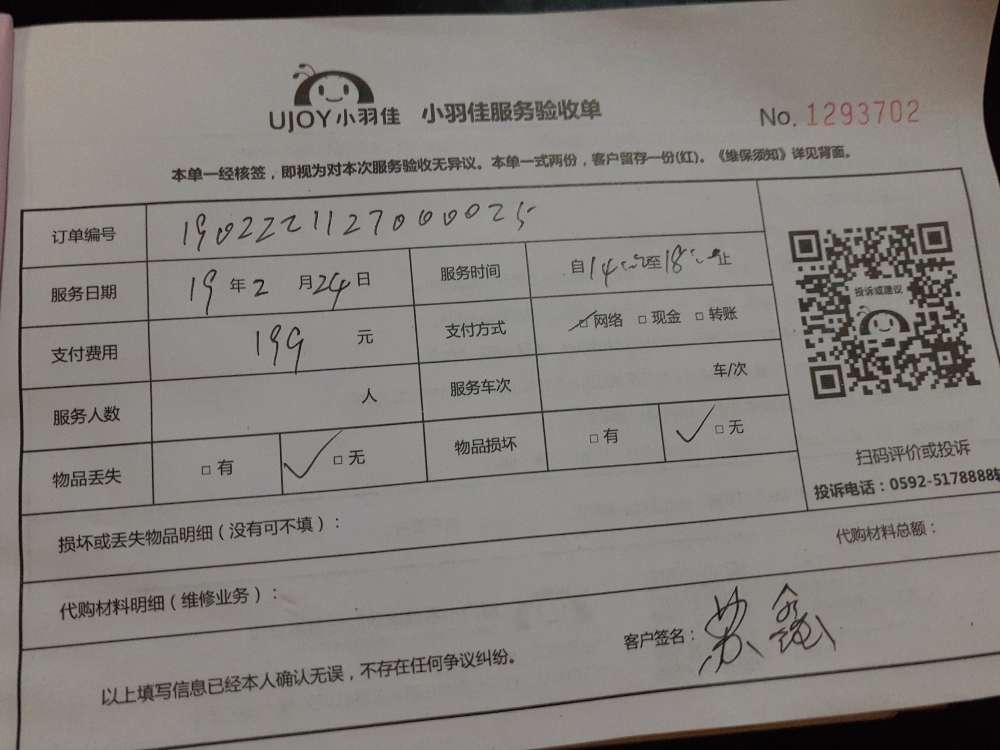 UJOY小羽佳 小羽佳服务验收单 No. 1293702
本单一经核签，即视为对本次服务验收无异议。本单一式两份，客户留存一份(红)。《维保须知》详见背面。
订单编号 1902221127000025
服务日期 19年2月24日 服务时间 自14:00至18:00止
支付费用 199 元 支付方式 □网络 □现金 □转账
服务人数 人 服务车次 车/次
物品丢失 □有 □无 物品损坏 □有 □无
投诉或建议
扫码评价或投诉
投诉电话：0592-5178888转
损坏或丢失物品明细（没有可不填）：
代购材料明细（维修业务）： 代购材料总额：
以上填写信息已经本人确认无误，不存在任何争议纠纷。 客户签名：苏鑫